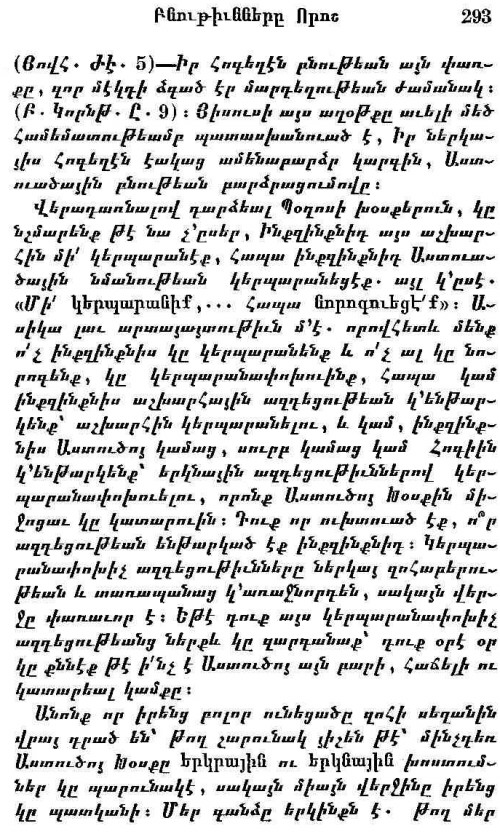 Բնութիւնները Որոշ 293
(Յովհ. ԺԷ. 5)—Իր Հոգեղէն բնութեան այն փառ-
քը, զոր մէկդի ձգած էր մարդեղութեան ժամանակ։
(Բ. Կորնթ. Ը. 9)։ Յիսուսի այս աղօթքը աւելի մեծ
Համեմատութեամբ պատասխանուած է, Իր ներկա-
յիս Հոգեղէն էակաց ամենաբարձր կարգին, Աստ-
ուածային բնութեան բարձրացումովը։
Վերադառնալով դարձեալ Պօղոսի խօսքերուն, կը
նշմարենք թէ նա չ՚ըսեր, Ինքզինքնիդ այս աշխար-
հին մի՛ կերպարանէք, հապա ինքզինքնիդ Աստուա-
ծային նմանութեան կերպարանեցէք. այլ կ՚ըսէ.
«Մի՛ կերպարանիք,... հապա նորոգուեցէ՛ք»։ Ա-
սիկա լաւ արտայայտութիւն մ՚է. որովհետև մենք
ո՛չ ինքզինքնիս կը կերպարանենք և ո՛չ ալ կը նո-
րոգենք, կը կերպարանափոխուինք, հապա կամ
ինքզինքնիս աշխարհային ազդեցութեան կ՚ենթար-
կենք՝ աշխարհին կերպարանելու, և կամ, ինքզինք-
նիս Աստուծոյ կամաց, սուրբ կամաց կամ Հոգիին
կ՚ենթարկենք՝ երկնային ազդեցութիւններով կեր-
պարանափոխուելու, որոնք Աստուծոյ Խօսքին մի-
ջոցաւ կը կատարուին։ Դուք որ ուխտուած էք, ո՞ր
ազդեցութեան ենթարկած էք ինքզինքնիդ։ Կերպա-
րանափոխիչ ազդեցութիւնները ներկայ զոհաբերու-
թեան և տառապանաց կ՚առաջնորդեն, սակայն վեր-
ջը փառաւոր է։ Եթէ դուք այս կերպարանափոխիչ
ազդեցութեանց ներքև կը զարգանաք՝ դուք օրէ օր
կը քննէք թէ ի՛նչ է Աստուծոյ այն բարի, հաճելի ու
կատարեալ կամքը։
Անոնք որ իրենց բոլոր ունեցածը զոհի սեղանին
վրայ դրած են՝ թող շարունակ յիշեն թէ՝ մինչդեռ
Աստուծոյ Խօսքը երկրային ու երկնային խոստում-
ներ կը պարունակէ, սակայն միայն վերջինը իրենց
կը պատկանի։ Մեր գանձը երկինքն է. թող մեր